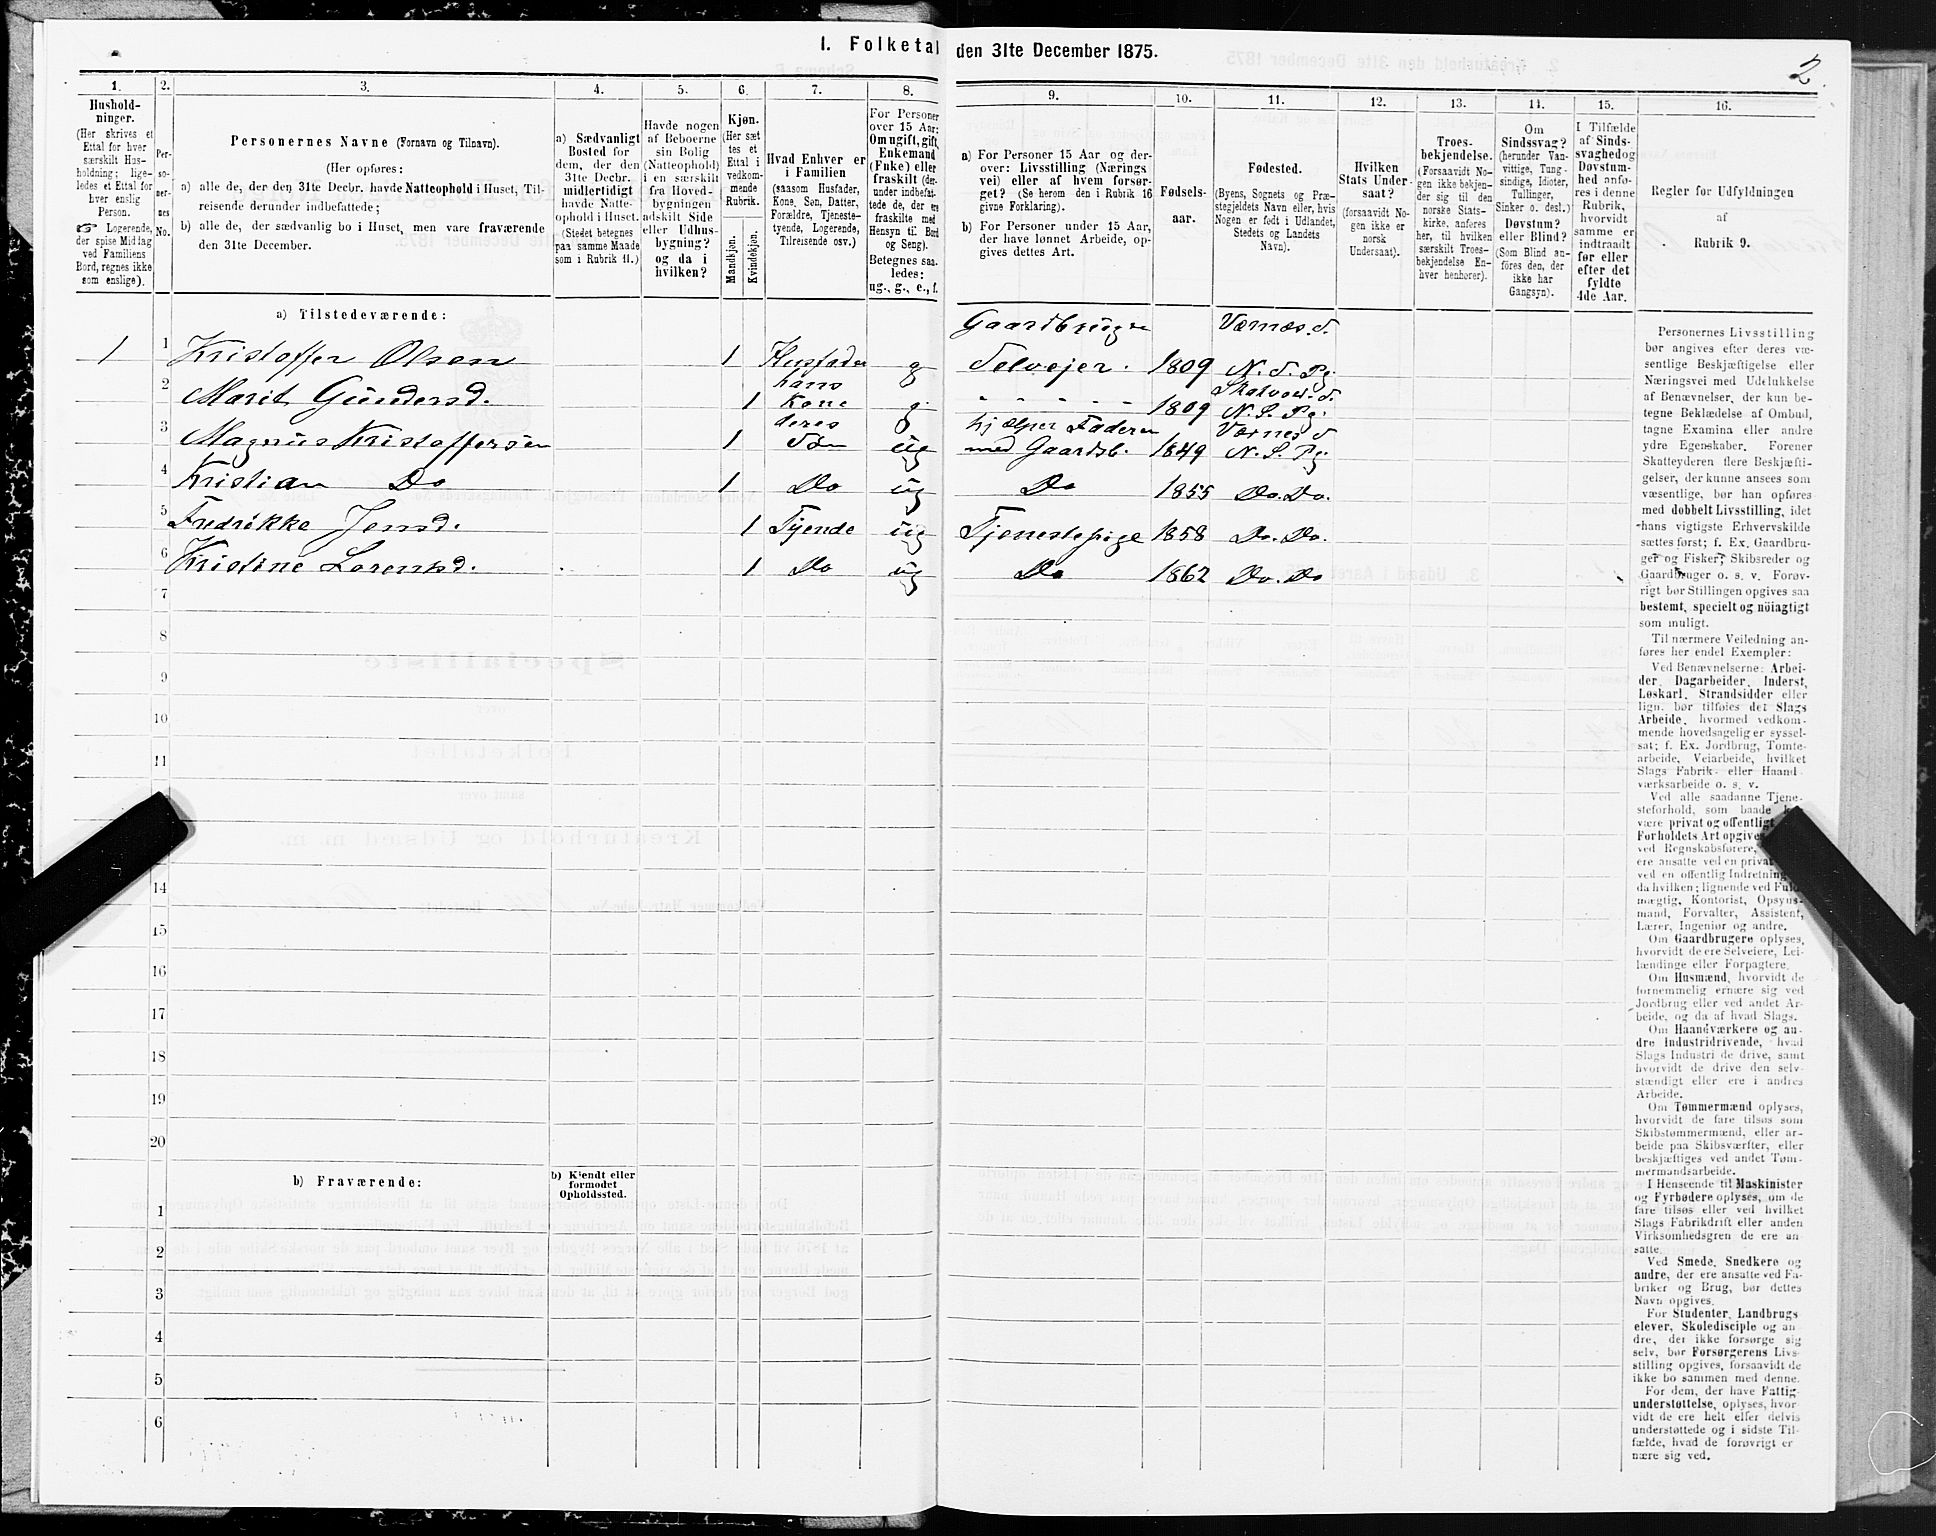 I. Folketal den 31te December 1875.
2.
1.
Hushold-
ninger.
(Her skrives et
Ettal for hver
særskilt Hus-
holdning; lige-
ledes et Ettal for
hver enslig
Person.
☞ Logerende,
der spise Middag
ved Familiens
Bord, regnes ikke
som enslige).
2.
Per-
so-
ner-
nes
No.
3.
Personernes Navne (Fornavn og Tilnavn).
(Her opføres:
a) alle de, der den 31te Decbr. havde Natteophold i Huset, Til-
reisende derunder indbefattede;
b) alle de, der sædvanlig bo i Huset, men vare fraværende
den 31te December.
4.
a) Sædvanligt
Bosted for
dem, der den
31te Decbr.
midlertidigt
havde Natte-
ophold i Huset.
(Stedet betegnes
paa samme Maade
som i Rubrik 11.)
5.
Havde nogen
af Beboerne
sin Bolig
(Natteophold)
i en særskilt
fra Hoved-
bygningen
adskilt Side
eller Udhus-
bygning?
og da i
hvilken?
6.
Kjøn.
(Her sæt-
tes et
Ettal i
vedkom-
mende
Rubrik.
Mandkjøn.
Kvindekjøn.
7.
Hvad Enhver er
i Familien
(saasom Husfader,
Kone, Søn, Datter,
Forældre, Tjeneste-
tyende, Logerende,
Tilreisende osv.)
8.
For Personer
over 15 Aar:
Om ugift, gift,
Enkemand
(Enke) eller
fraskilt (der-
under indbefat-
tede de, der ere
fraskilte med
Hensyn til Bord
og Seng).
Betegnes saa-
ledes:
ug., g., e., f.
9.
a) For Personer 15 Aar og der-
over: Livsstilling (Nærings
vei) eller af hvem forsør-
get? (Se herom den i Rubrik 16
givne Forklaring).
b) For Personer under 15 Aar,
der have lønnet Arbeide, op-
gives dettes Art.
10.
Fødsels-
aar.
11.
Fødested.
(Byens, Sognets og Præ-
stegjeldets Navn eller, hvis
Nogen er født i Udlandet,
Stedets og Landets
Navn).
12.
Hvilken
Stats Under-
saat?
(forsaavidt No-
gen ikke er
norsk
Undersaat).
13.
Troes-
bekjendelse.
(Forsaavidt No-
gen ikke bekjen-
der sig til den
norske Stats-
kirke, anføres
her, til hvilken
særskilt Troes-
bekjendelse En-
hver henhører).
14.
Om
Sindssvag?
(herunder Van-
vittige, Tung-
sindige, Idioter,
Tullinger,
Sinker o. desl.)
Døvstum?
eller Blind?
(Som Blind an-
føres den, der
ikke har
Gangsyn).
15.
I Tilfælde
af Sinds-
svaghed og
Døvstum-
hed anfø-
res i denne
Rubrik,
hvorvidt
samme er
indtraadt
før eller
efter det
fyldte
4de Aar.
16.
Regler for Udfyldningen
af
Rubrik 9.
a) Tilstedeværende:
Gaardbruger Værnes. S.
1 1 Kristoffer Olsen 1 Husfader g Selveier. 1809 N. S. Pg.
hans Skatvold. S.
2 Marit Gundersd. 1 Kone g. " " " " " 1809 N. S. Pg.
deres hjælper Faderen Værnes S
3 Magnus Kristoffersen 1 Søn ug med Gaardsb. 1849 N. S. Pg
4 Kristian Do 1 Do ug Do 1855 Do. Do.
5 Fredrikke Jensd. 1 Tyende ug Tjenestepige 1858 Do. Do.
6 Kristine Lorentsd. 1 Do ug Do 1862 Do. Do
7
8
9
10
11
14
15
16
17
18
19
20
b) Fraværende:
b) Kjendt eller
formodet
Opholdssted.
1
2
3
4
5
6
Personernes Livsstilling
bør angives efter deres væ-
sentlige Beskjæftigelse eller
Næringsvei med Udelukkelse
af Benævnelser, der kun be-
tegne Beklædelse af Ombud,
tagne Examina eller andre
ydre Egenskaber. Forener
Skatteyderen flere Beskjæfti-
gelser, der kunne ansees som
væsentlige, bør han opføres
med dobbelt Livsstilling, idet
hans vigtigste Erhvervskilde
sættes først; f. Ex. Gaardbru-
ger og Fisker; Skibsreder og
Gaardbruger o. s. v. Forøv-
rigt bør Stillingen opgives saa
bestemt, specielt og nöiagtigt
som muligt.
Til nærmere Veiledning an-
føres her endel Exempler:
Ved Benævnelserne: Arbei-
der, Dagarbeider, Inderst,
Løskarl, Strandsidder eller
lign. bør tilføies det Slags
Arbeide, hvormed vedkom-
mende hovedsagelig er syssel-
sat; f. Ex. Jordbrug, Tomte-
arbeide, Veiarbeide, hvilket
Slags Fabrik- eller Haand-
værksarbeide o. s. v.
Ved alle saadanne Tjene-
steforhold, som baade
være privat og offentligt,
Forholdets Art opgives
ved Regnskabsførere,
ere ansatte ved en privat
ved en offentlig Indretning
da hvilken; lignende ved Fuld-
mægtig, Kontorist, Opsyns-
mand, Forvalter, Assistent,
Lærer, Ingeniør og andre.
Om Gaardbrugere oplyses,
hvorvidt de ere Selveiere, Lei-
lændinge eller Forpagtere.
Om Husmænd, hvorvidt de
fornemmelig ernære sig ved
Jordbrug eller ved andet Ar-
beide, og da af hvad Slags.
Om Haandværkere og an-
dre Industridrivende, hvad
Slags Industri de drive, samt
hvorvidt de drive den selv-
stændigt eller ere i andres
Arbeide.
Om Tømmermænd oplyses,
hvorvidt de fare tilsøs som
Skibstømmermænd, eller ar-
beide paa Skibsværfter, eller
beskjæftiges ved andet Tøm-
mermandsarbeide.
I Henseende til Maskinister
og Fyrbødere oplyses, om de
fare tilsøs eller ved hvilket
Slags Fabrikdrift eller anden
Virksomhedsgren de ere an-
satte.
Ved Smede, Snedkere og
andre, der ere ansatte ved Fa-
briker og Brug, bør dettes
Navn opgives.
For Studenter, Landbrugs-
elever, Skoledisciple og an-
dre, der ikke forsørge sig
selv, bør Forsørgerens Livs-
stilling opgives, forsaavidt de
ikke bo sammen med denne.
For dem, der have Fattig-
understøttelse, oplyses, hvor-
vidt de ere helt eller delvis
understøttede og i sidste Til-
fælde, hvad de forøvrigt er-
nære sig ved.